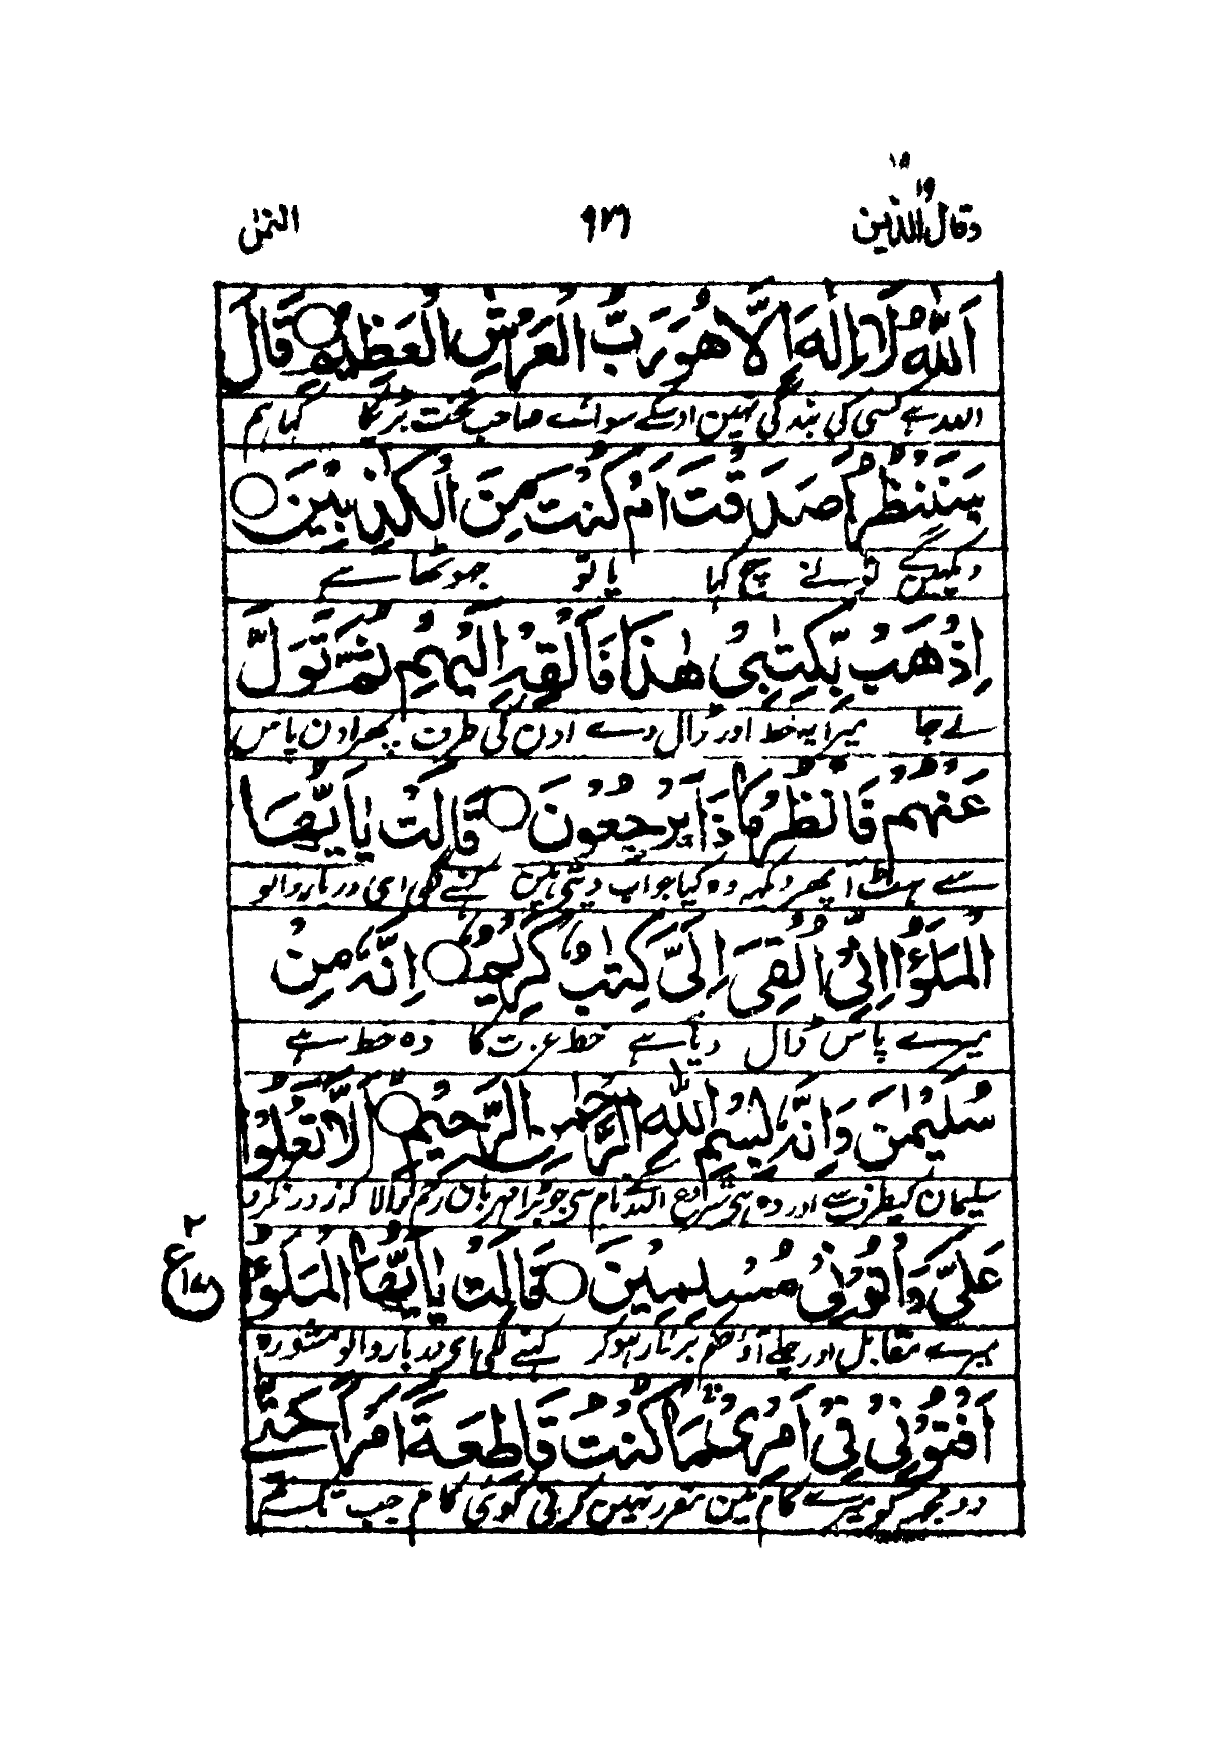 ١٩
وقال الذين ٩٢٦ النمل
اَللّٰهُ لَاۤ اِلٰهَ اِلَّا هُوَ رَبُّ الْعَرْشِ الْعَظِيْمِ ○ قَالَ
اللہ ہے کسی کی بندگی نہین اوسکے سوائے صاحب تخت بڑیکا کہا ہم
سَنَنْظُرُ اَصَدَقْتَ اَمْ كُنْتَ مِنَ الْكٰذِبِيْنَ ○
دیکھیں گے تونے سچ کہا یا تو جھوٹھا ہے
اِذْهَبْ بِّكِتٰبِيْ هٰذَا فَاَلْقِهْ اِلَيْهِمْ ثُمَّ تَوَلَّ
لے جا میرا یہ خط اور ڈال دے اون کی طرف پھر اون پاس
عَنْهُمْ فَانْظُرْ مَا ذَا يَرْجِعُوْنَ ○ قَالَتْ يٰۤاَيُّهَا
سے ہٹ آ پھر دیکھہ وہ کیا جواب دیتے ہیں کہنے لگی ای دربار والو
الْمَلَؤُا اِنِّيْۤ اُلْقِيَ اِلَيَّ كِتٰبٌ كَرِيْمٌ ○ اِنَّهٗ مِنْ
میرے پاس ڈال دیا ہے خط عزت کا وہ خط ہے
سُلَيْمٰنَ وَاِنَّهٗ بِسْمِ اللّٰهِ الرَّحْمٰنِ الرَّحِيْمِ ○ اَلَّا تَعْلُوْا
سلیمان کیطرف سے اور وہ ہی شروع اللہ کے نام سی جو بڑا مہربان رحم والا کہ زور نکرو
عَلَيَّ وَاْتُوْنِيْ مُسْلِمِيْنَ ○ قَالَتْ يٰۤاَيُّهَا الْمَلَؤُا
میرے مقابل اور چلے آؤ حکم بردار ہوکر کہنے لگی ای دربار والو مشورہ
اَفْتُوْنِيْ فِيْۤ اَمْرِيْ مَا كُنْتُ قَاطِعَةً اَمْرًا حَتّٰى
دو مجھ کو میرے کام مین مقرر نہیں کرتی کوئی کام جب تک تم
٢
ع
١٧